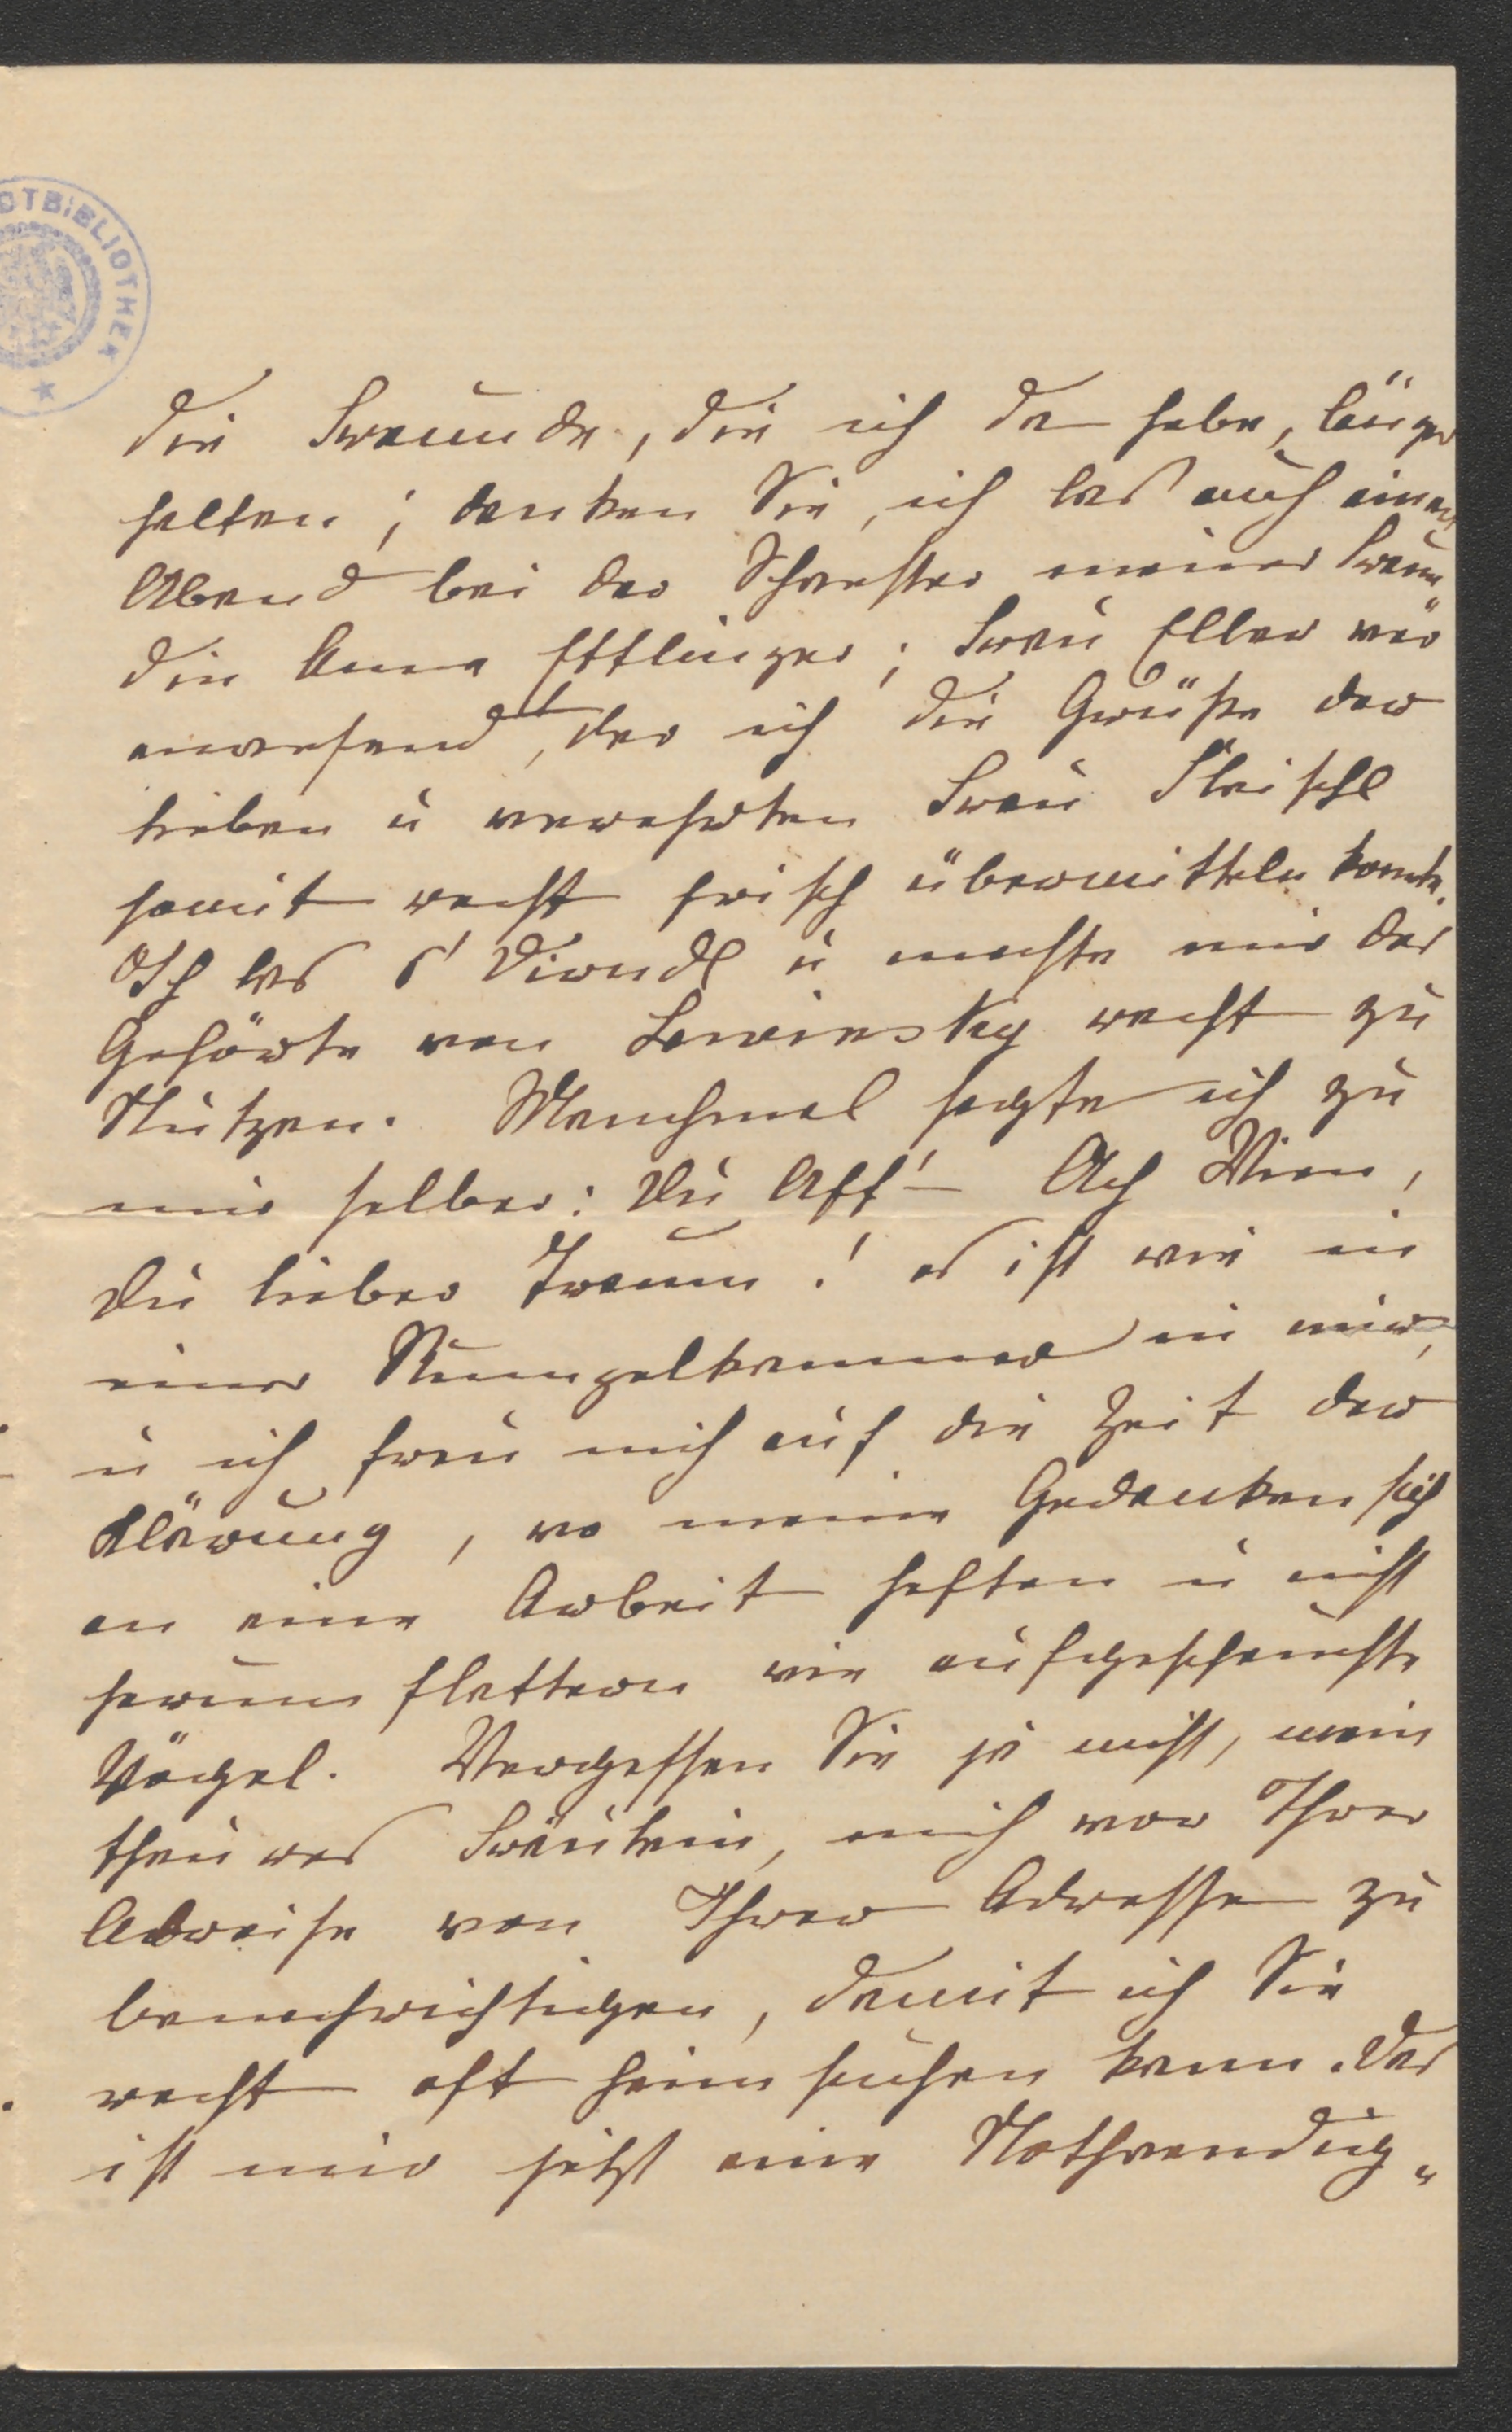 DTBIBLIOTHEK
die Freunde, die ich da habe, länger
halten; denken Sie, ich las auch einen
Abend bei der Schwester meiner Freun„
din Anna Ettlinger; Frau Eller war
anwesend, der ich die Grüße der
lieben u verehrten Frau Fleischl
somit recht frisch übermitteln konnte.
Ich las s' Dirndl u machte mir das
Gehörte von Lewinsky recht zu
Nutzen. Manchmal sagte ich zu
mir selber: Du Aff'! – Ach Wien,
Du lieber Traum! es ist wie in
einer Rumpelkammer in mir,
u ich freu mich auf die Zeit der
Klärung, wo meine Gedanken sich
an eine Arbeit heften u nicht
herum flattern wie aufgescheuchte
Vögel. Vergessen Sie ja nicht, mein
theures Fräulein, mich vor Ihrer
Abreise von Ihrer Adresse zu
benachrichtigen, damit ich Sie
recht oft heimsuchen kann. Das
ist mir jetzt eine Nothwendig„